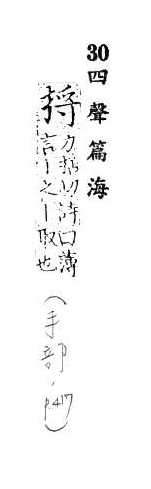 30 四聲篇海
捋
力括切詩曰薄
言丨之丨取也
(手部,p.417)